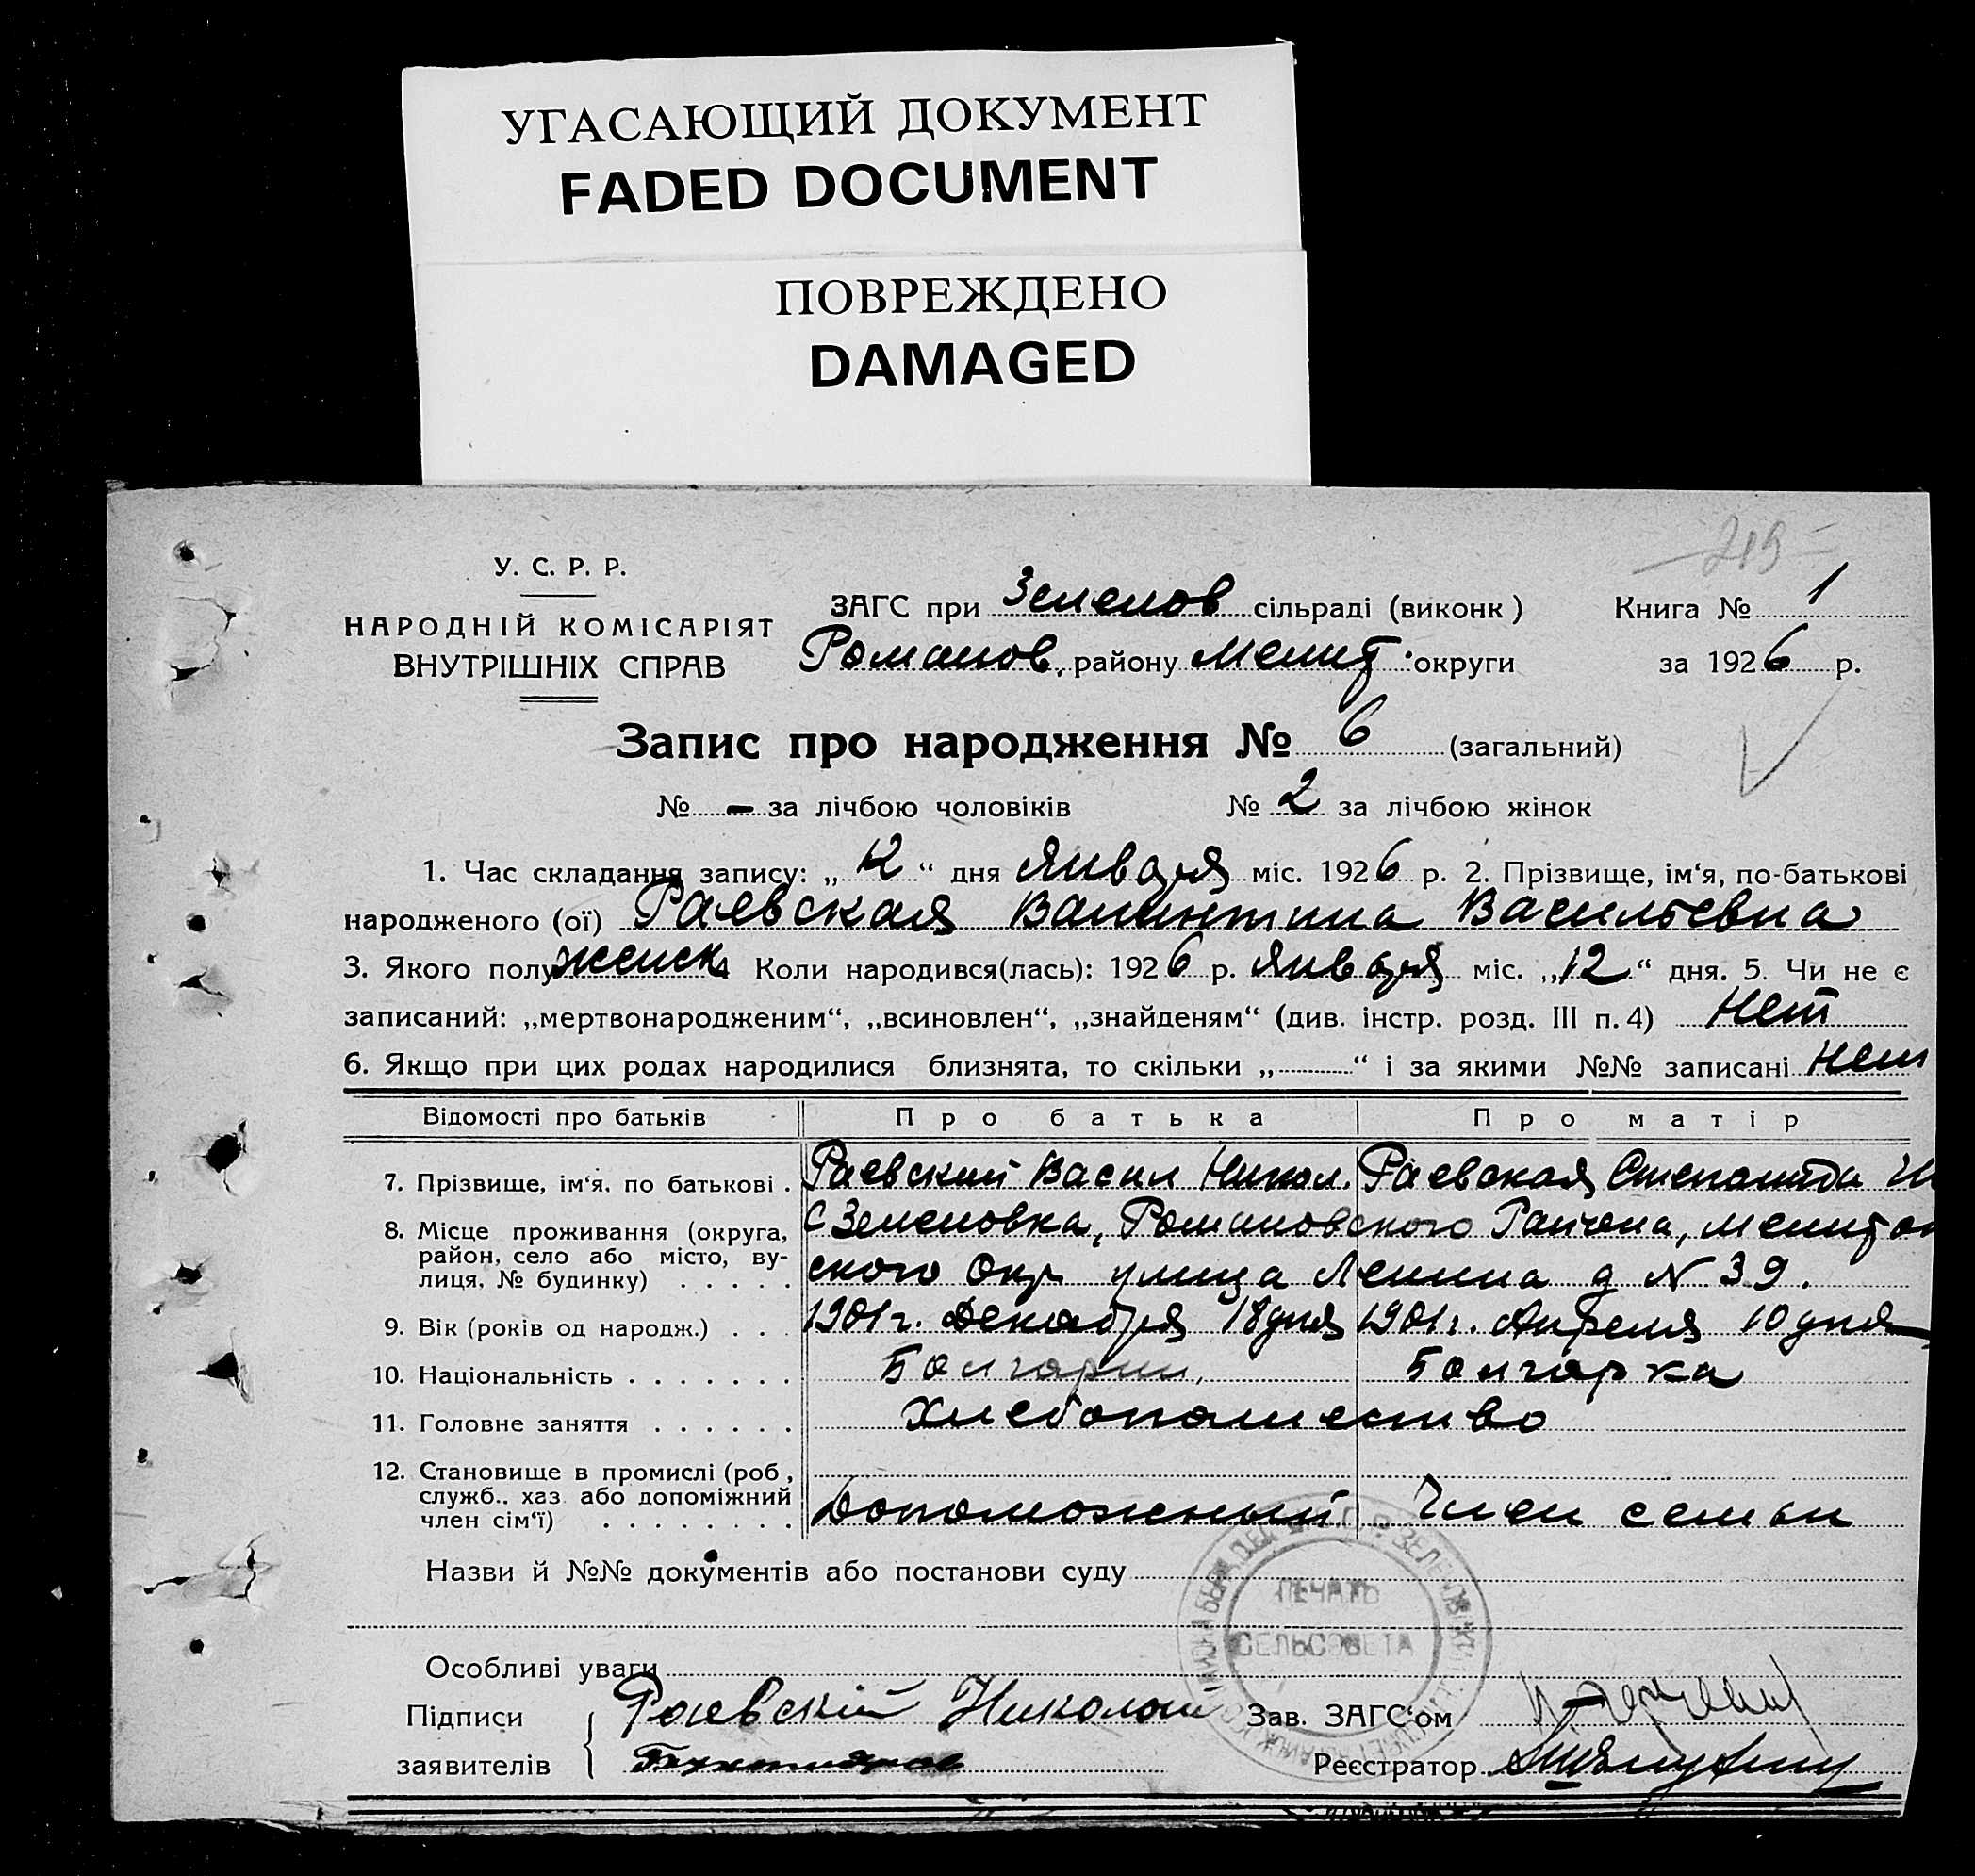 УГАСАЮЩИЙ ДОКУМЕНТ
FADED DOCUMENT
ПОВРЕЖДЕНО
DAMAGED
-219-
У. С. Р. Р.
НАРОДНІЙ КОМІСАРІЯТ
ВНУТРІШНІХ СПРАВ
ЗАГС при Зеленов сільраді (виконк)
Книга № 1
Романов. району Мелит. округи
за 1926 р.
Запис про народження № 6 (загальний)
№ - за лічбою чоловіків № 2 за лічбою жінок
1. Час складання запису: „12“ дня Января міс. 1926 р. 2. Прізвище, ім‘я, по-батькові
народженого (ої) Раевская Валентина Васильевна
3. Якого полу женск 4 Коли народився(лась): 1926 р. Января міс. „12“ дня. 5. Чи не є
записаний: „мертвонародженим“, „всиновлен“, „знайденям“ (див. інстр. розд. III п. 4) Нет
6. Якщо при цих родах народилися близнята, то скільки „ “ і за якими №№ записані Нет
Відомості про батьків Про батька Про матір
7. Прізвище, ім‘я, по батькові . Раевский Васил Никол. Раевская Степанида
8. Місце проживання (округа, район, село або місто, вулиця, № будинку) . . . . .
с Зеленовка, Романовского Района, Мелитоп
ского Окр улица Ленина д N 39.
9. Вік (років од народж.) . . . 1901 г. Декабря 18 дня 1901 г. Апреля 10 дня
10. Національність . . . . . . . Болгарин, Болгарка
11. Головне заняття . . . . . . Хлебопашество
12. Становище в промислі (роб, служб.. хаз. або допоміжний член сім‘ї) . . . . . . . .
Допоможный Член семьи
Назви й №№ документів або постанови суду
ПЕЧАТЬ
СЕЛЬСОВЕТА
Особливі уваги
Підписи
заявителів
Раевскій Николай
Зав. ЗАГС‘ом
Реєстратор